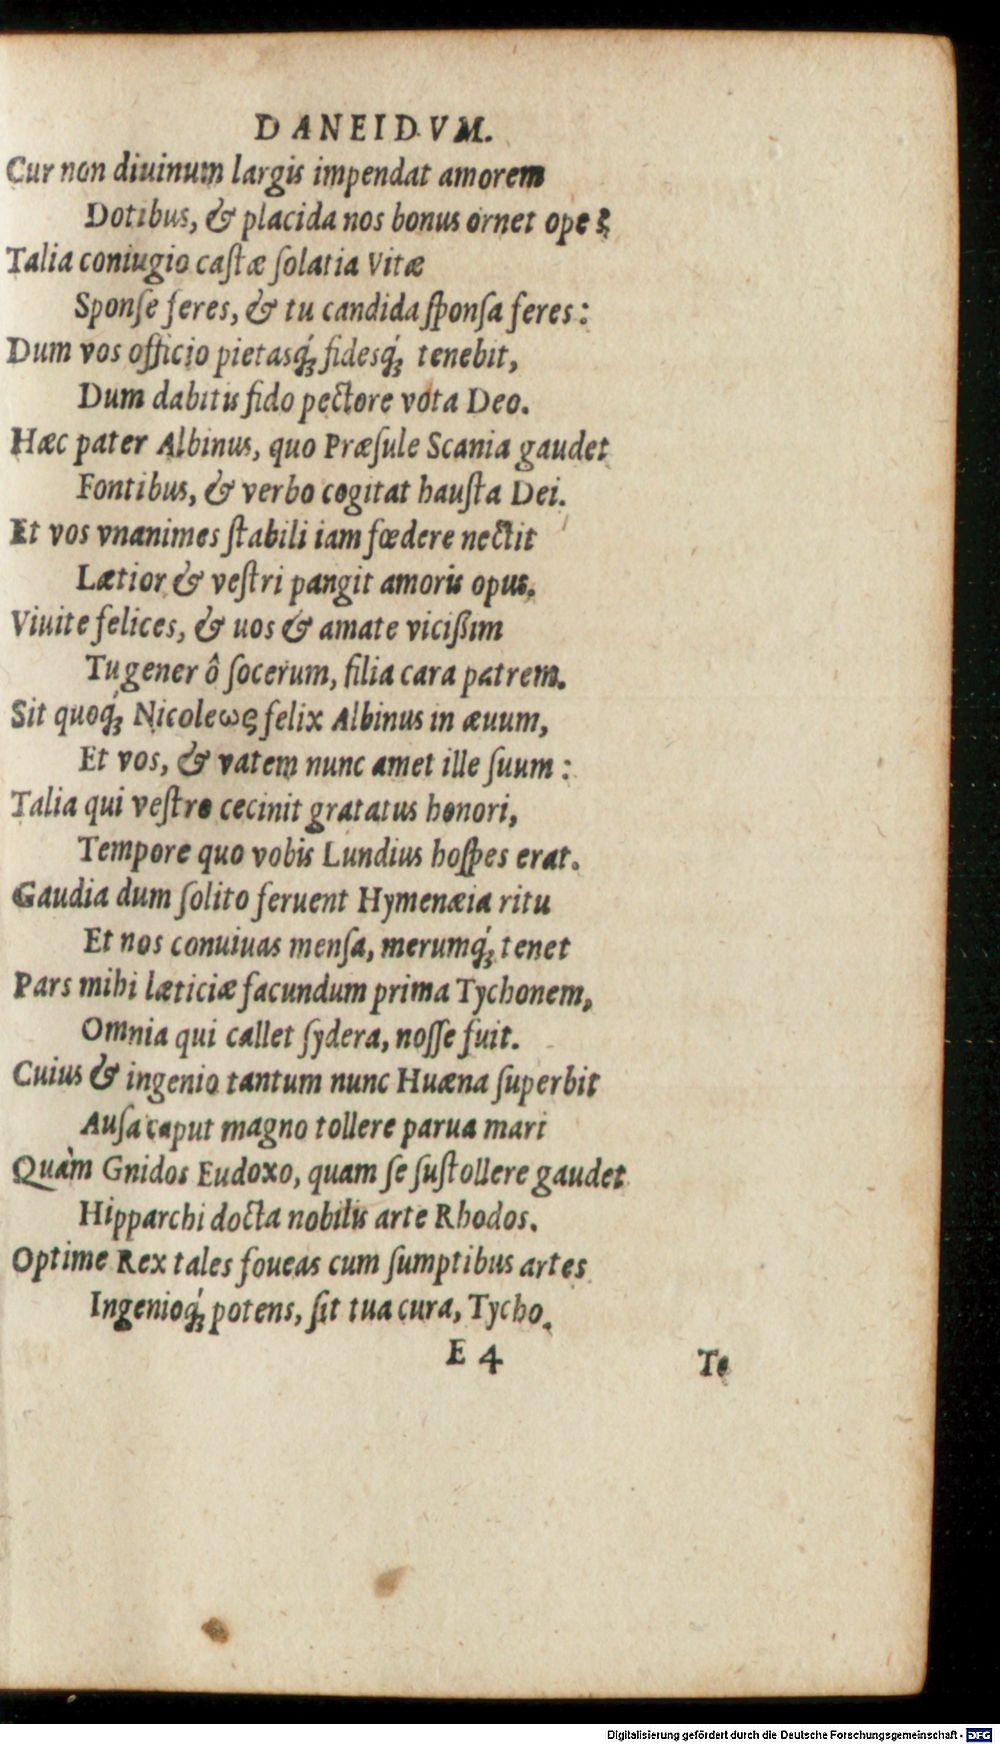 DANEIDVM.
Cur non diuinum largis impendat amorem
Dotibus, & placida nos bonus ornet ope?
Talia coniugio castæ ſolatia Vitæ
Sponſe feres, & tu candida ſponſa feres:
Dum vos officio pietasq́; fidesq́; tenebit,
Dum dabitis fido pectore vota Deo.
Hæc pater Albinus, quo Præſule Scania gaudet
Fontibus, & verbo cogitat hauſta Dei.
Et vos vnanimes ſtabili iam fœdere nectit
Lætior & veſtri pangit amoris opus.
Viuite felices, & uos & amate vicißim
Tu gener ô ſocerum, filia cara patrem.
Sit quoq́; Nicoleως felix Albinus in æuum,
Et vos, & vatem nunc amet ille ſuum:
Talia qui veſtro cecinit gratatus honori,
Tempore quo vobis Lundius hoſpes erat.
Gaudia dum ſolito feruent Hymenæia ritu
Et nos conuiuas menſa, merumq́; tenet
Pars mihi læticiæ facundum prima Tychonem,
Omnia qui callet ſydera, noſſe fuit.
Cuius & ingenio tantum nunc Huæna ſuperbit
Auſa caput magno tollere parua mari
Quàm Gnidos Eudoxo, quam ſe ſuſtollere gaudet
Hipparchi docta nobilis arte Rhodos.
Optime Rex tales foueas cum ſumptibus artes
Ingenioq́; potens, ſit tua cura, Tycho.
E 4 Te
Digitalisierung gefördert durch die Deutsche Forschungsgemeinschaft - DFG